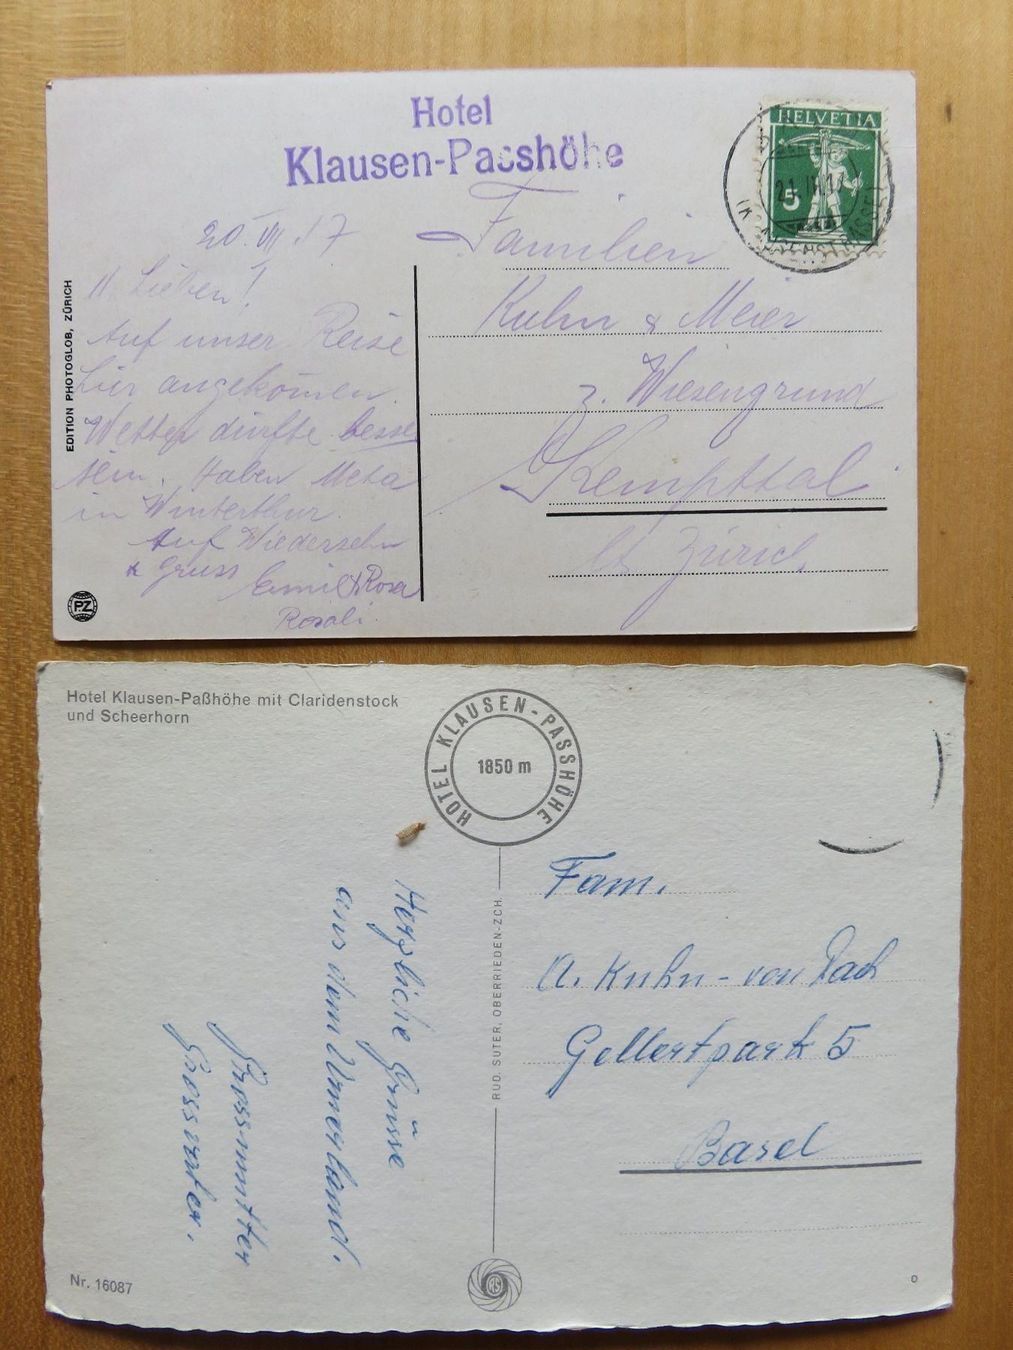 Hotel
Klausen-Passhöhe
HELVETIA
5
20. VII. 17
Lieben!
Auf unser Reise
hier angekommen.
Wetter dürfte besser
sein. Haben Meta
in Winterthur.
Auf Wiedersehn
& Gruss Emil & Rosa
Rosali.
Familien
Kuhn & Meier
z. Wiesengrund
Kempttal
Zürich.
EDITION PHOTOGLOB, ZÜRICH
PZ
Hotel Klausen-Paßhöhe mit Claridenstock
und Scheerhorn
HOTEL KLAUSEN-PASSHÖHE
1850 m
Herzliche Grüsse
aus dem Urnerland.
Grossmutter
Grossvater.
RUD. SUTER, OBERRIEDEN-ZCH.
Fam.
A. Kuhn-von Dach
Gellertpark 5
Basel
Nr. 16087
RSO
o